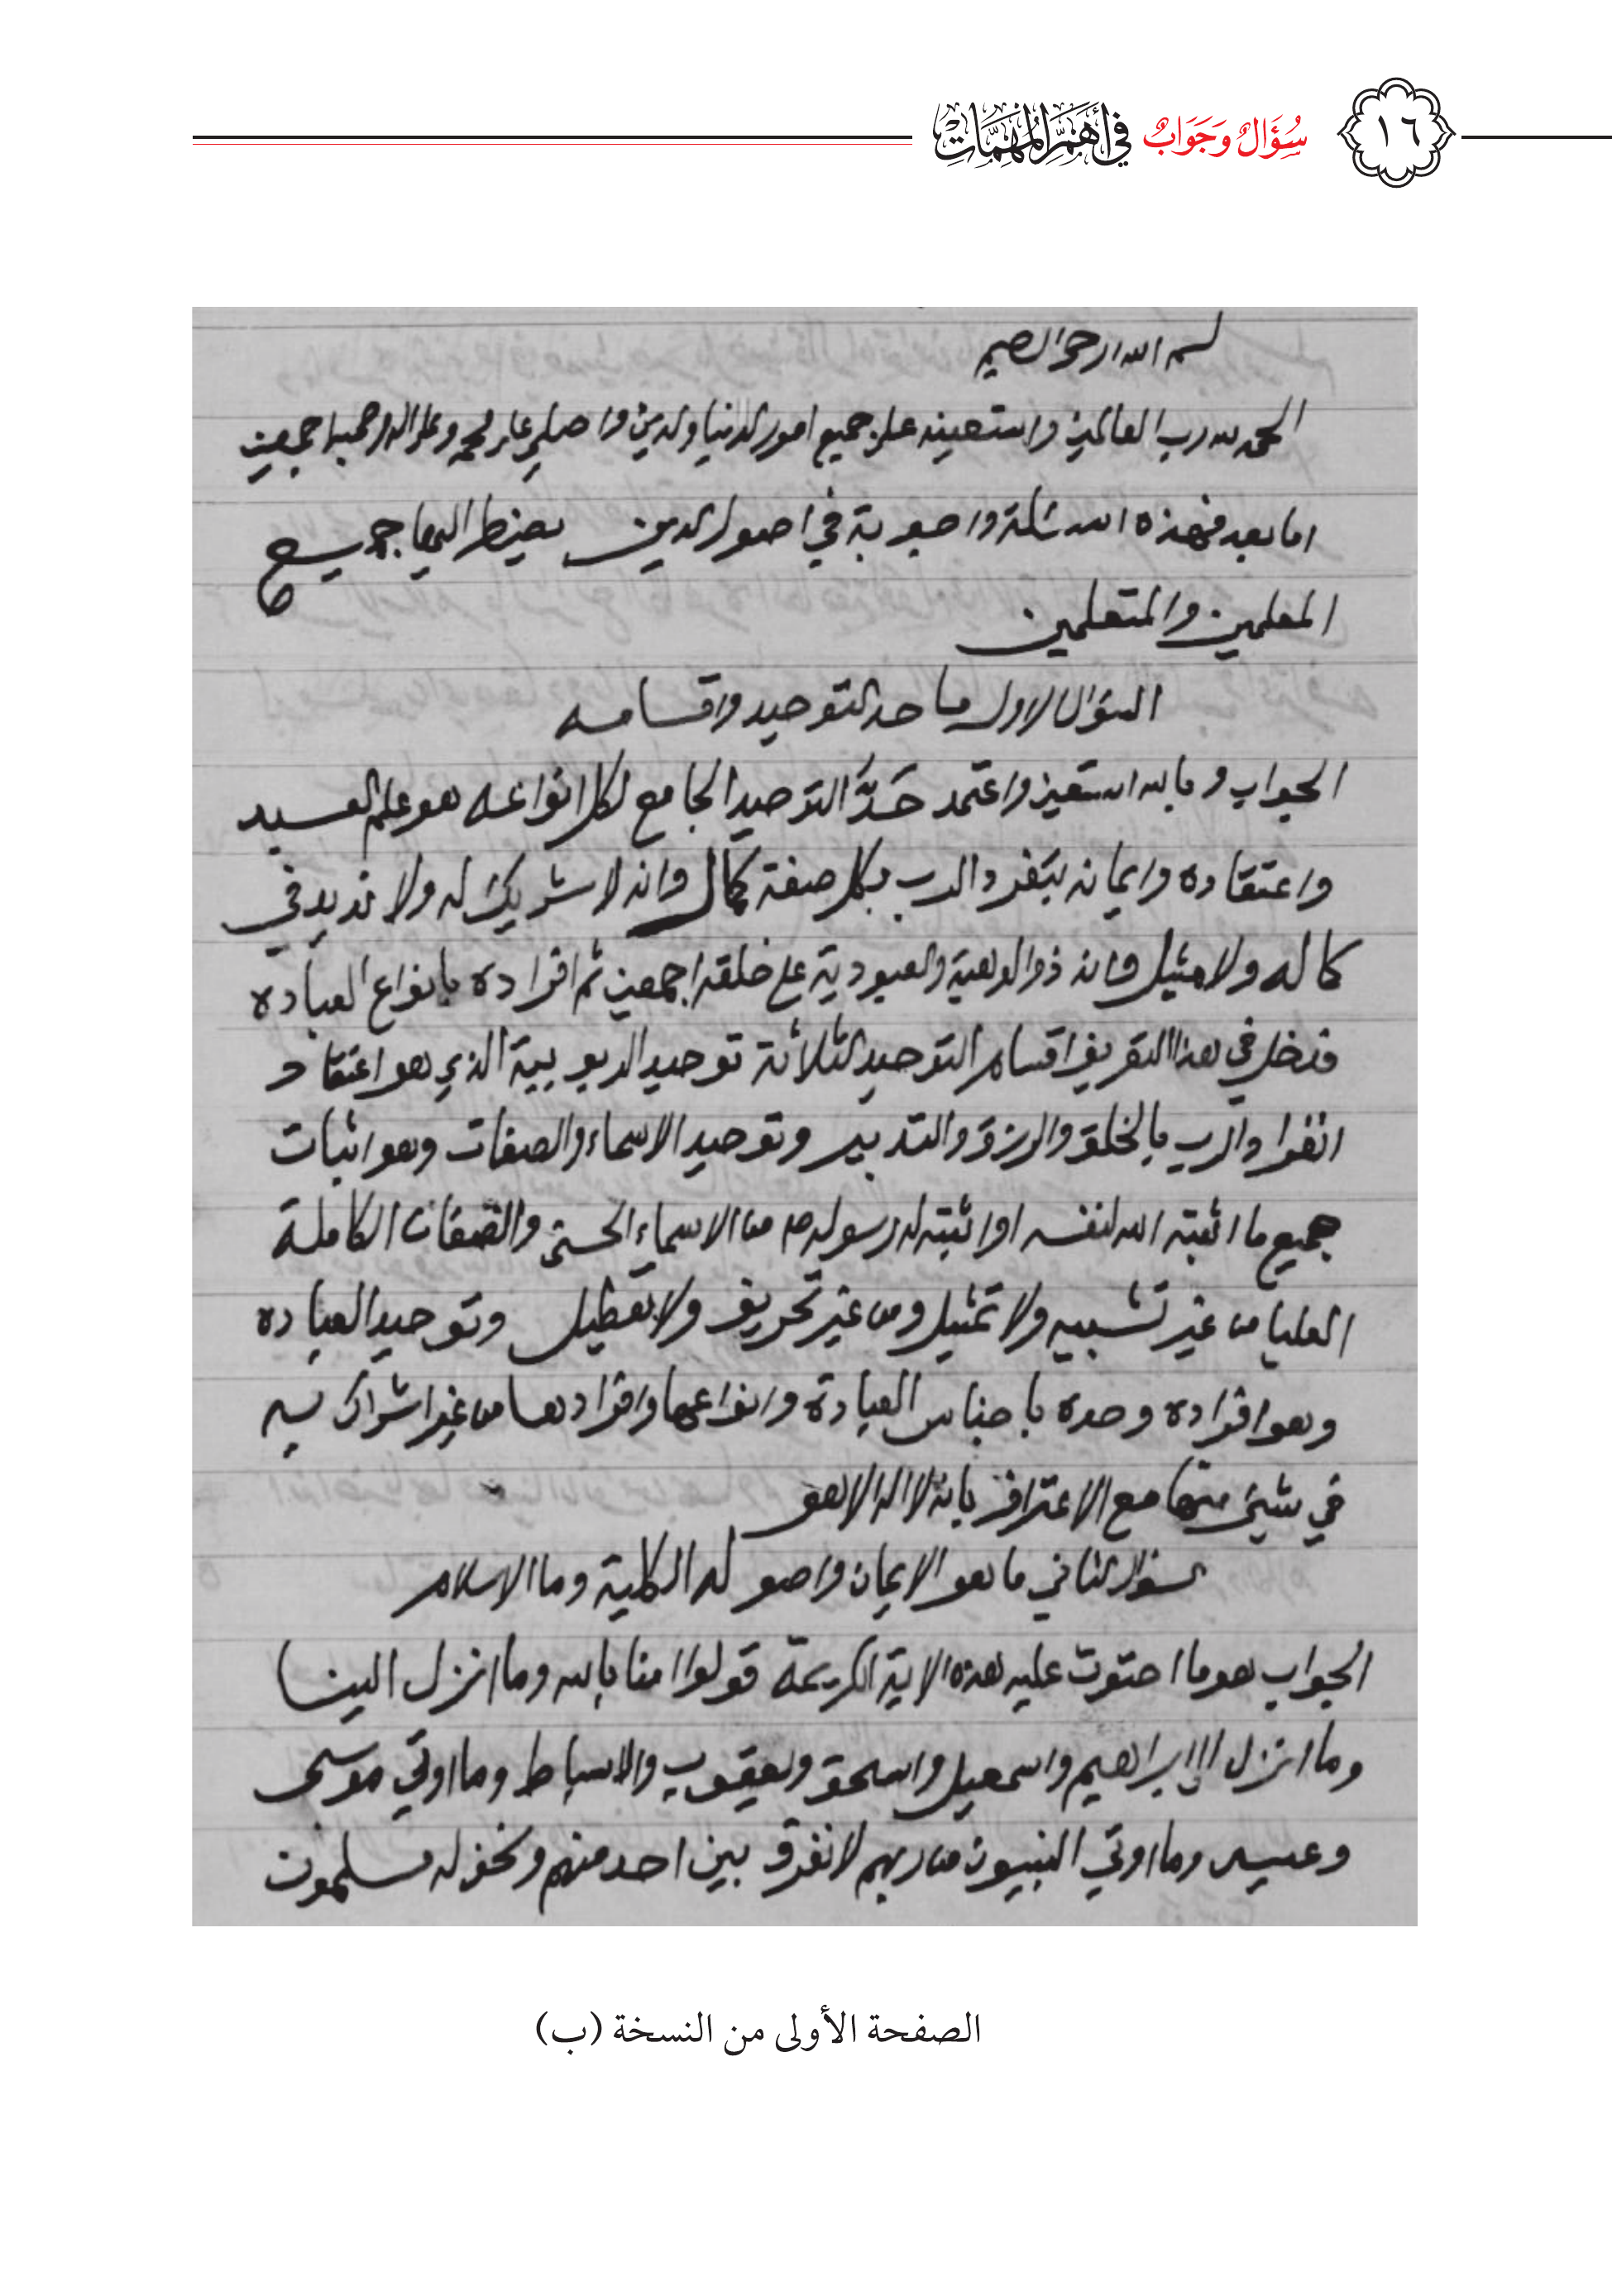 ١٦
سُؤَالٌ وَجَوَابٌ في أَهَمِّ المُهِمَّاتْ
بسم الله الرحمن الرحيم
الحمد لله رب العالمين واستعينه على جميع امور الدنيا والدين واصلي على محمد وعلى اله وصحبه اجمعين
اما بعد فهذه اسئلة واجوبة في اصول الدين يضطر اليها جميع
المعلمين والمتعلمين
السؤال الاول ما حد التوحيد واقسامه
الجواب وبالله استعين واعتمد حَدُّ التوحيد الجامع لكل انواعه هو علم العبد
واعتقاده وايمانه بتفرد الرب بكل صفة كمال وانه لا شريك له ولا نديد في
كماله ولا مثيل وانه ذو الالوهية والعبودية على خلقه اجمعين ثم افراده بانواع العباده
فدخل في هذا التعريف اقسام التوحيد الثلاثة توحيد الربوبية الذي هو اعتقاد
انفراد الرب بالخلق والرزق والتدبير وتوحيد الاسماء والصفات وهو اثبات
جميع ما اثبته الله لنفسه او اثبته له رسوله ص من الاسماء الحسنى والصفات الكاملة
العليا من غير تشبيه ولا تمثيل ومن غير تحريف ولا تعطيل وتوحيد العباده
وهو افراده وحده باجناس العبادة وانواعها وافرادها من غير اشراك به
في شيئ منها مع الاعتراف بانه لا اله الا هو
السؤال الثاني ما هو الايمان واصوله الكلية وما الاسلام
الجواب هو ما احتوت عليه هذه الاية الكريمة قولوا امنا بالله وما انزل الينا
وما انزل الى ابراهيم واسمعيل واسحق ويعقوب والاسباط وما اوتي موسى
وعيسى وما اوتي النبيون من ربهم لا نفرق بين احد منهم ونحن له مسلمون
الصفحة الأولى من النسخة (ب)